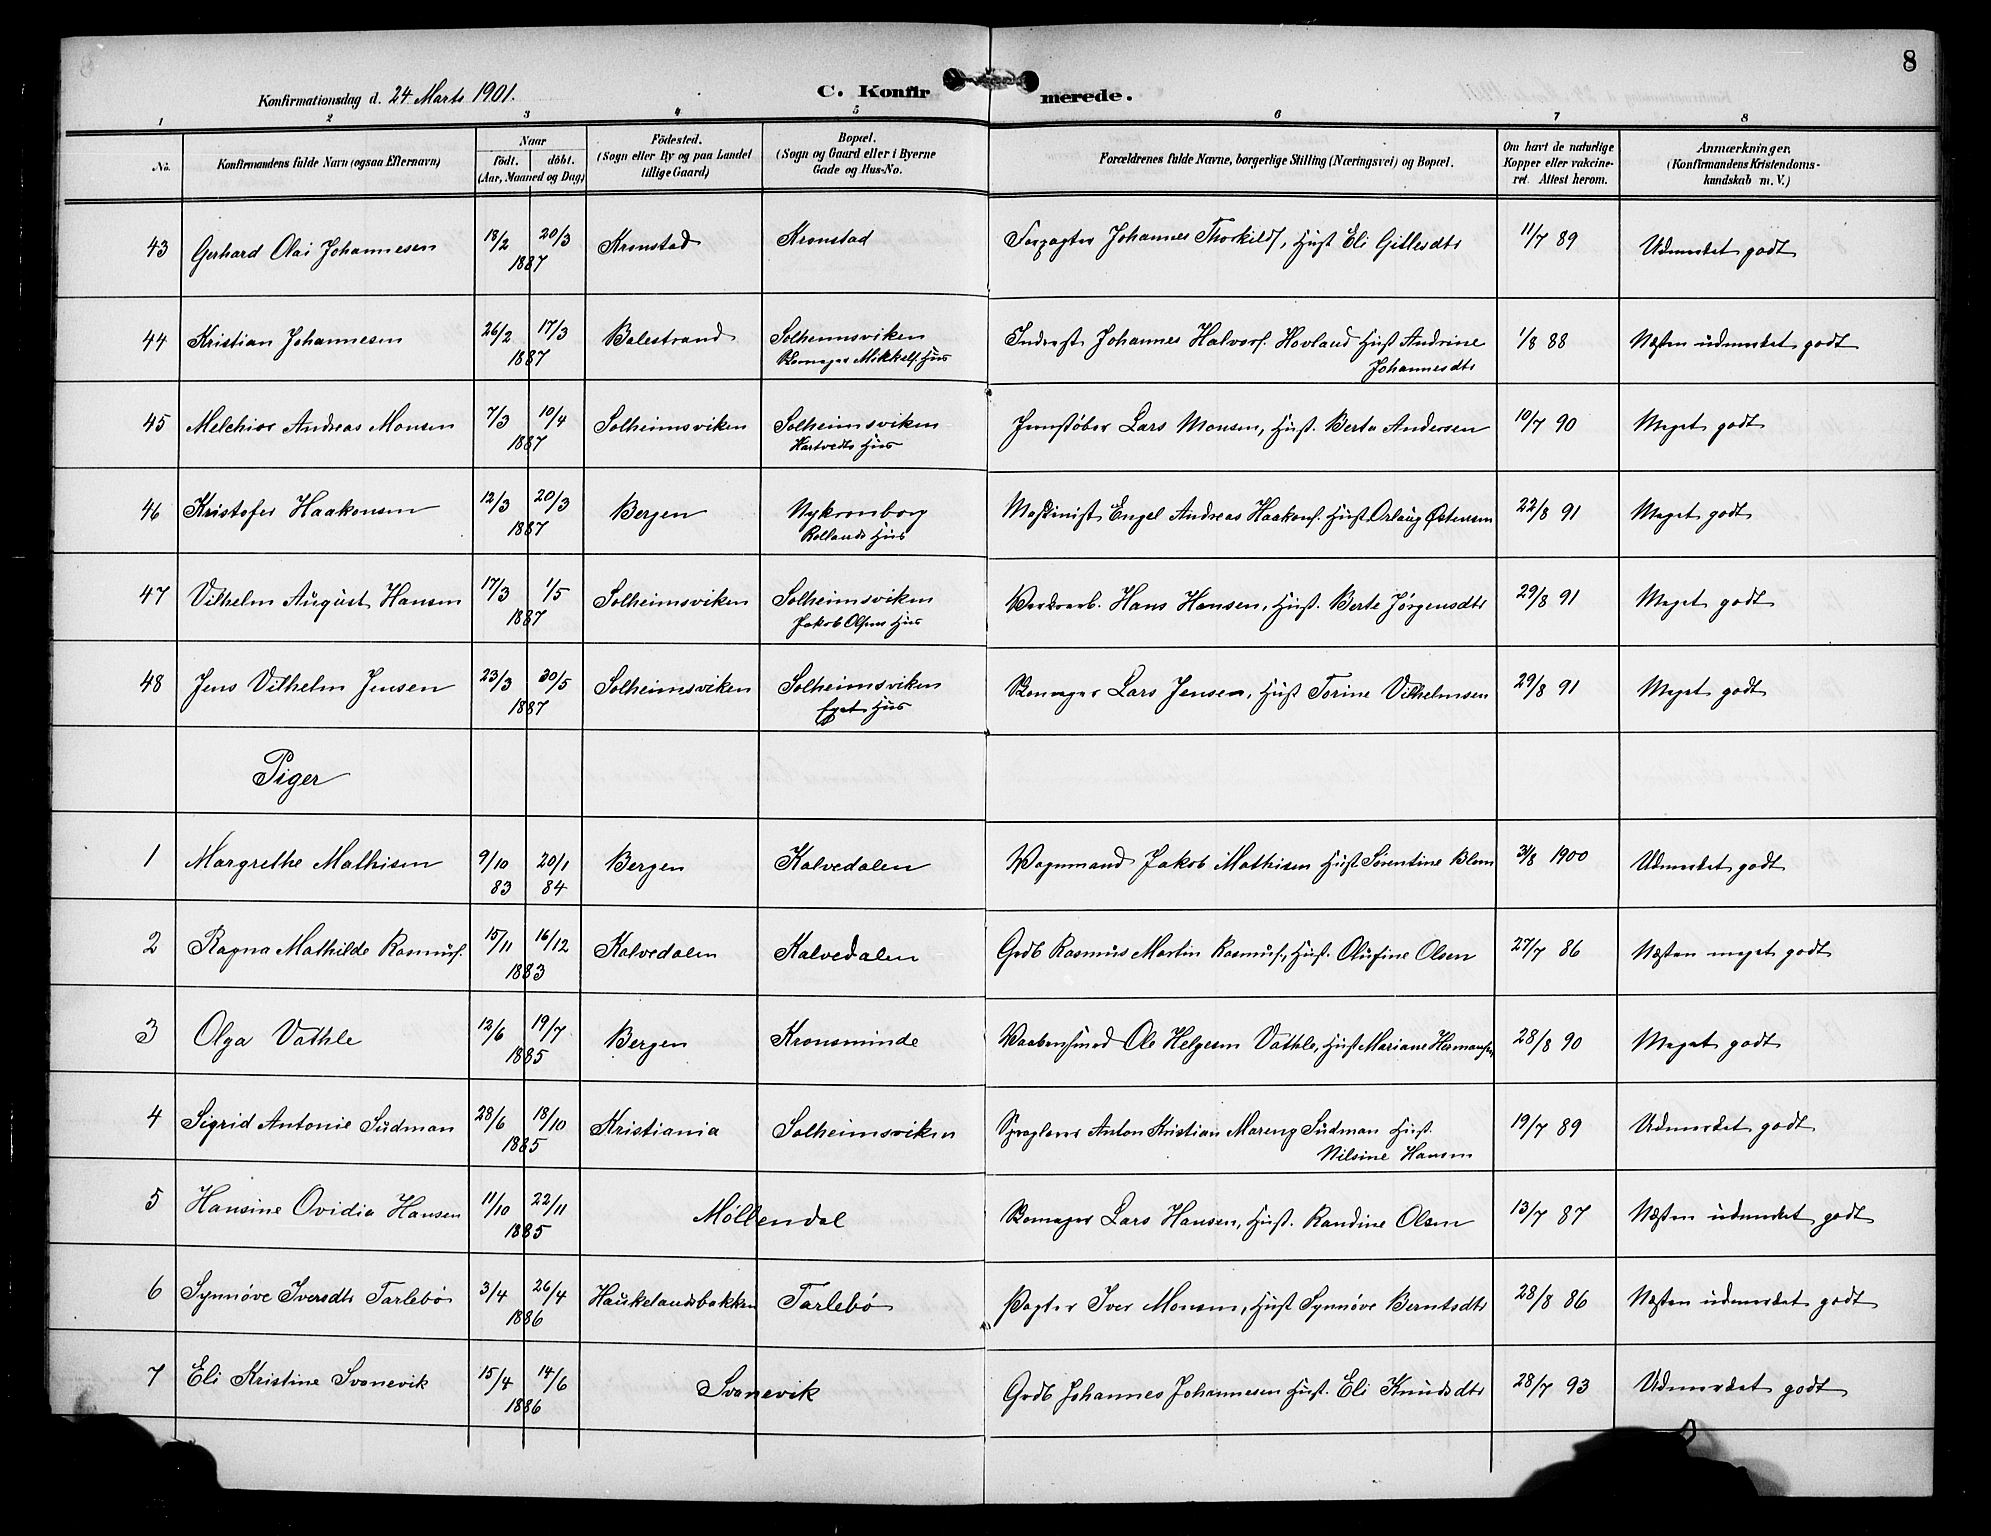 8
Konfirmationsdag d. 24 Marts 1901.
C. Konfirmerede.
1 2 3 4 5 6 7 8
No.
Konfirmandens fulde Navn (ogsaa Efternavn)
Naar
födt. döbt.
(Aar, Maaned og Dag)
Födested.
(Sogn eller By og paa Landet
tillige Gaard)
Bopæl.
(Sogn og Gaard eller i Byerne
Gade og Hus-No.
Forældrenes fulde Navne, borgerlige Stilling (Næringsvei) og Bopæl.
Om havt de naturlige
Kopper eller vakcine-
ret. Attest herom.
Anmærkninger.
(Konfirmandens Kristendoms-
kundskab m. V.)
43 Gerhard Olai Johannesen 18/2 20/3 Kronstad Kronstad Forpagter Johannes Thorkilds, Hust Eli Gillesdtr 11/7 89 Udmerket godt
1887
44 Kristian Johannesen 26/2 17/3 Balestrand Solheimsviken Inderst Johannes Halvors. Hovland Hust Andrine 1/8 88 Næsten udmerket godt
1887 Skomager Mikkels. Hus Johannesdtr
45 Melchior Andreas Monsen 7/3 10/4 Solheimsviken Solheimsviken Jernstøber Lars Monsen, Hust. Berta Andersen 10/7 90 Meget godt
1887 Hartvedts Hus
46 Kristofer Haakonsen 12/3 20/3 Bergen Nykronborg Maskinist Engel Andreas Haakons. Hust Orlaug Østensen 22/8 91 Meget godt
1887 Rollands Hus
47 Vilhelm August Hansen 17/3 1/5 Solheimsviken Solheimsviken Værkarb. Hans Hansen, Hust. Berte Jørgensdtr 29/8 91 Meget godt
1887 Jakob Olsens Hus
48 Jens Vilhelm Jensen 23/3 30/5 Solheimsviken Solheimsviken Skomager Lars Jensen, Hust Torine Vilhelmsen 29/8 91 Meget godt
1887 Eget Hus
Piger
1 Margrethe Mathisen 9/10 20/1 Bergen Kalvedalen Vognmand Jakob Mathisen Hust Sørentine Blom 31/8 1900 Udmerket godt
83 84
2 Ragna Mathilde Rasmus. 15/11 16/12 Kalvedalen Kalvedalen Grdb Rasmus Martin Rasmus., Hust. Olufine Olsen 27/7 86 Næsten meget godt
1883
3 Olga Vathle 12/6 19/7 Bergen Kronsminde Vaabensmed Ole Helgesen Vathle, Hust Mariane Hermansen 28/8 90 Meget godt
1885
4 Sigrid Antonie Sudman 28/6 18/10 Kristiania Solheimsviken Anton Kristian Sudman Hust. 19/7 89 Udmerket godt
1885 Nilsine Hansen
5 Hansine Ovidia Hansen 11/10 22/11 Møllendal Skomager Lars Hansen, Hust. Randine Olsen 13/7 87 Næsten udmerket godt
1885
6 Synnøve Iversdtr Tarlebø 3/4 26/4 Haukelandsbakken Tarlebø Pagter Iver Monsen, Hust Synnøve Berntsdtr 28/8 86 Næsten udmerket godt
1886
7 Eli Kristine Svanevik 15/4 14/6 Svanevik Grdb Johannes Johannesen Hust. Eli Knudsdtr 28/7 93 Udmerket godt
1886